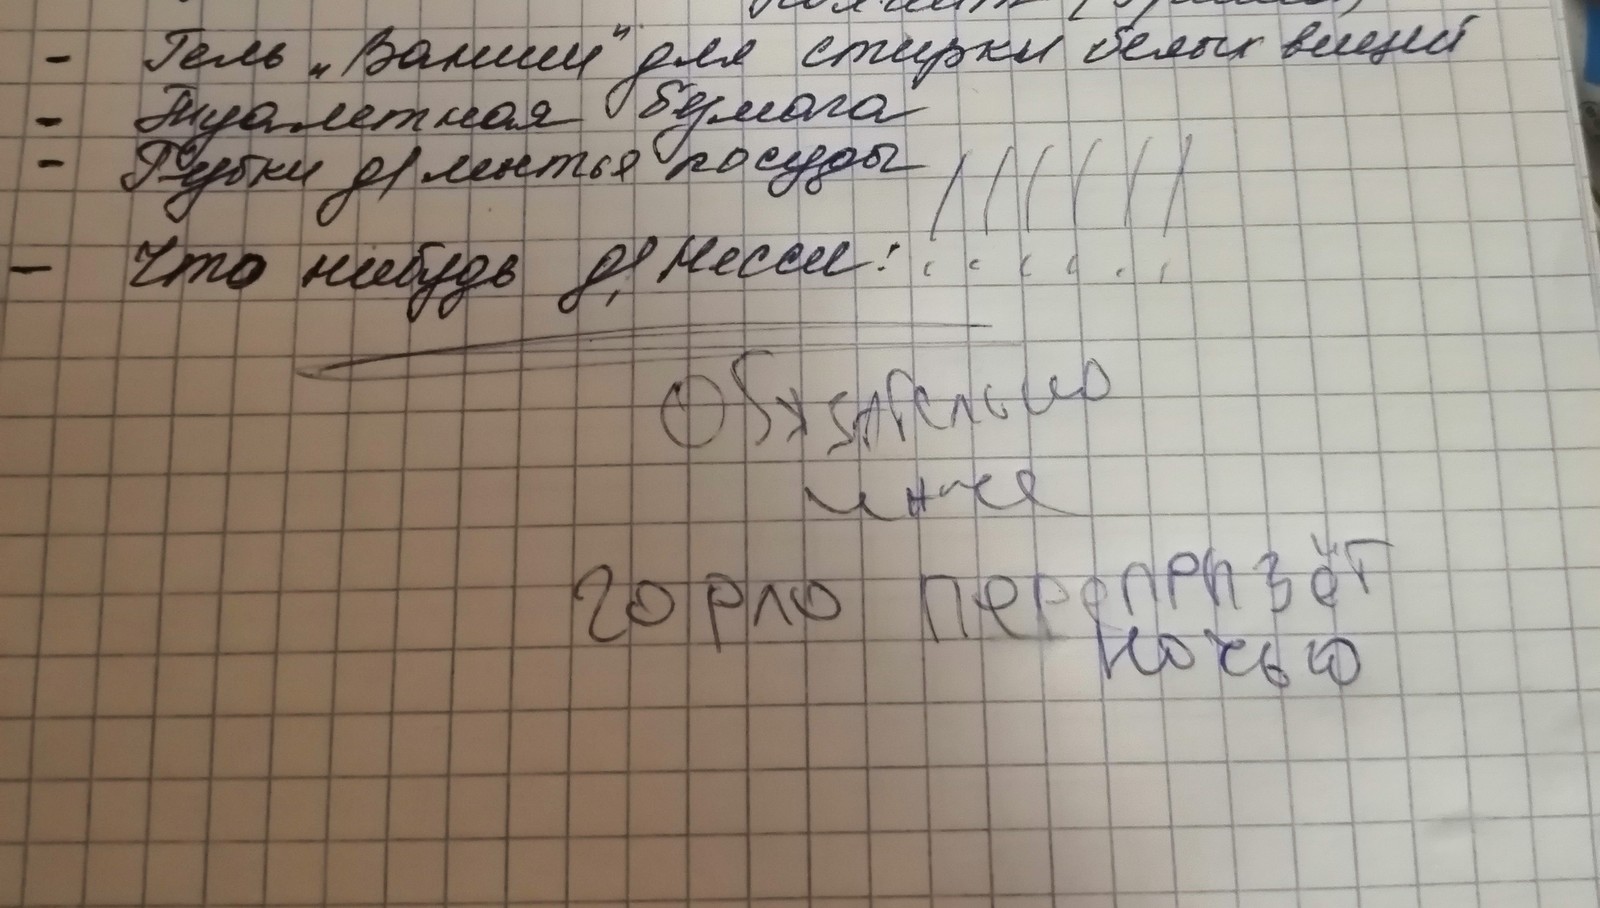 - Гель „Ваниш" для стирки белых вещей
- Туалетная бумага
- Губки д/мытья посуды
- Что нибудь д/Несси!!!!!!!
Обязательно
иначе
горло перегрызёт
ночью